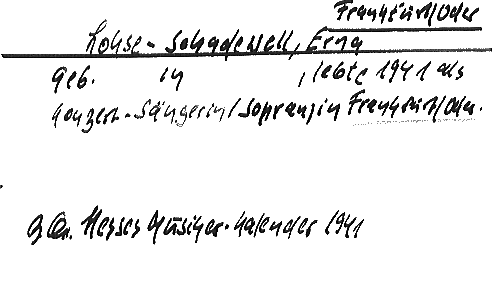 Frankfurt/Oder
Lohse-Schadewell, Erna
geb. in , lebte 1941 als
Konzert-Sängerin/Sopran in Frankfurt/Oder.
Hesses Musiker-Kalender 1941